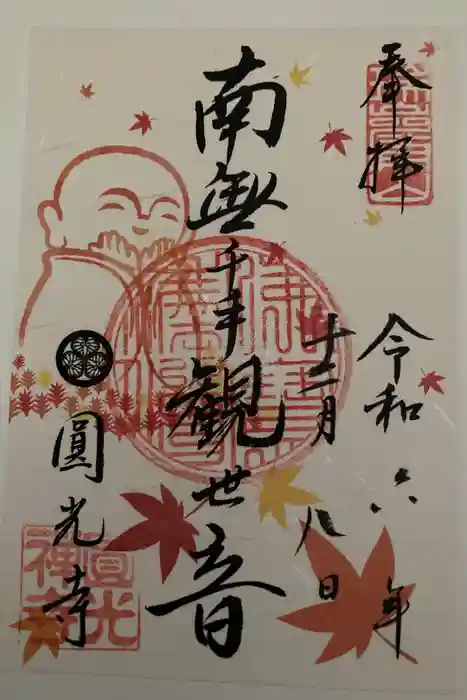 奉拝
令和六年
十二月八日
南無千手観世音
圓光寺
圓光
禅寺